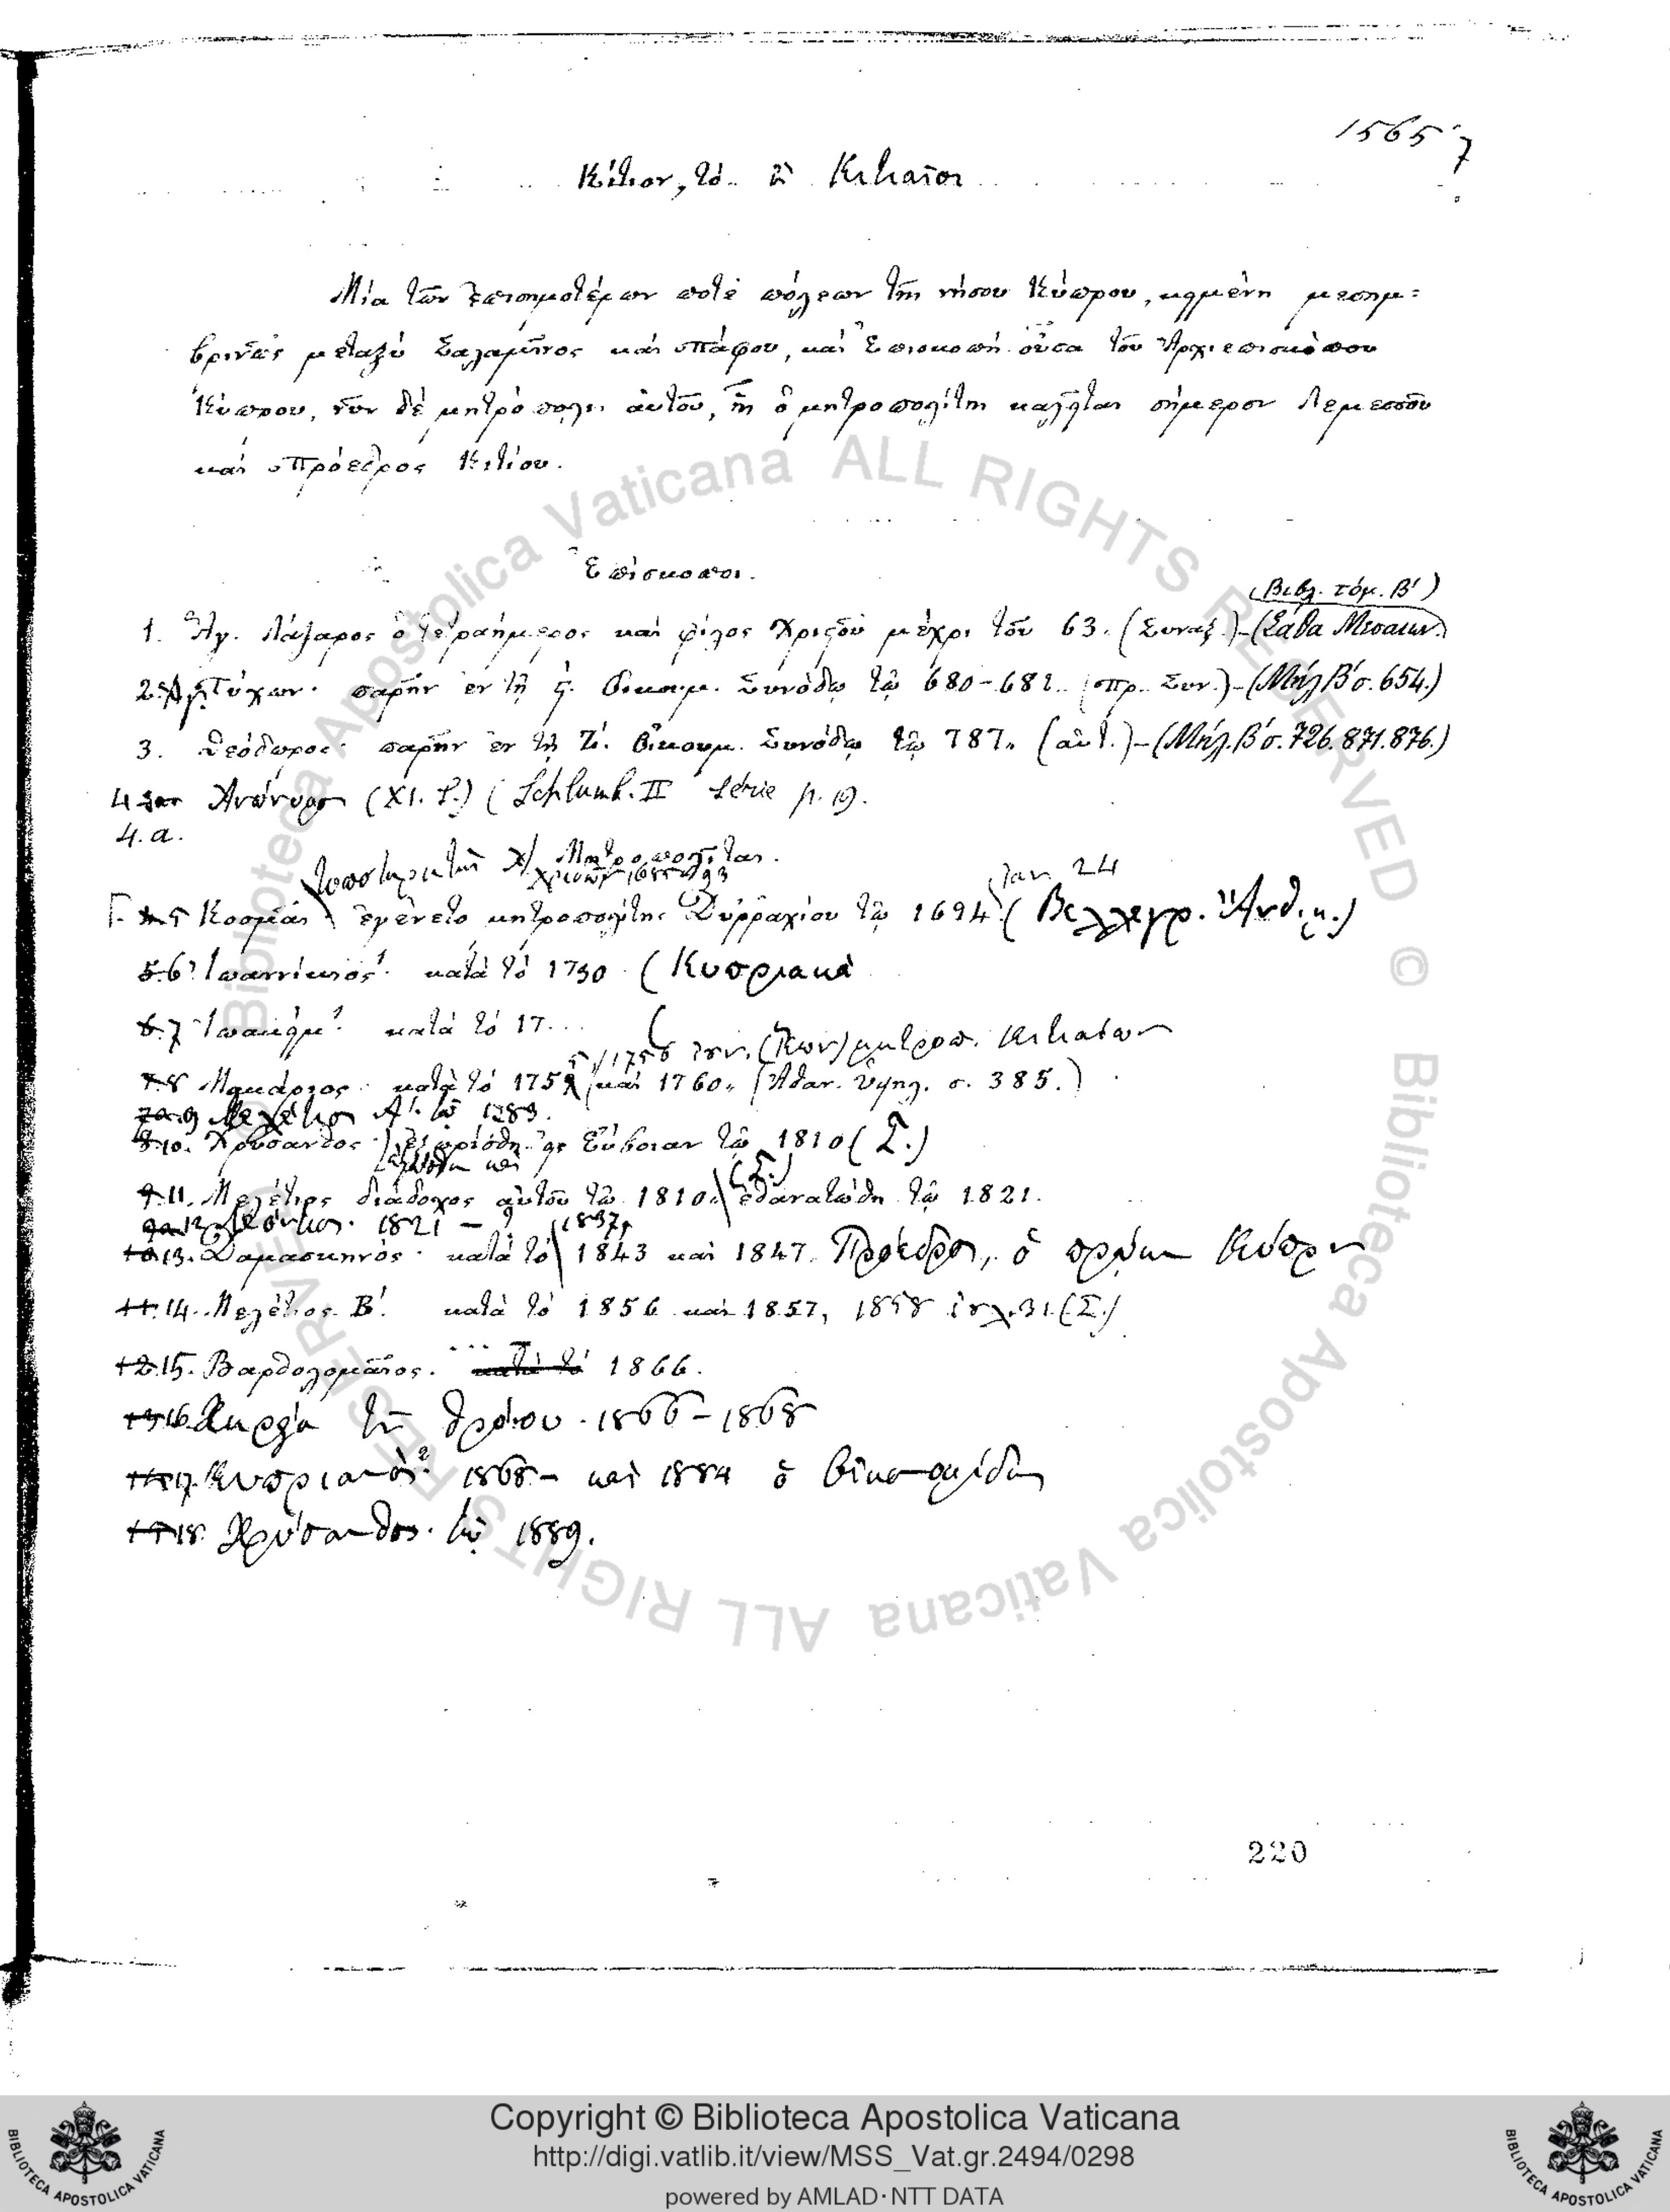 1565
7
Κίτιον, τό. ἢ Κιτιαῖοι
Μία τῶν ἐπισημοτέρων ποτὲ πόλεων τῆς νήσου Κύπρου, κειμένη μεσημ=
βρινῶς μεταξὺ Σαλαμῖνος καὶ Πάφου, καὶ Ἐπισκοπὴ οὖσα τοῦ Ἀρχιεπισκόπου
Κύπρου, νῦν δὲ μητρόπολις αὐτοῦ, ἧς ὁ μητροπολίτης καλεῖται σήμερον Λεμεσσοῦ
καὶ Πρόεδρος Κιτίου.
Ἐπίσκοποι.
(Βιβλ. τόμ. Β΄)
1. Ἅγ. Λάζαρος ὁ τετραήμερος καὶ φίλος Χριστοῦ μέχρι τοῦ 63. (Συναξ.)-(Σάθα Μεσαιων.)
2. Τύχων· παρῆν ἐν τῇ ϛ΄. Οἰκουμ. Συνόδῳ τῷ 680-681. (Πρ. Συν.)-(Μήλ. Β΄ σ. 654.)
3. Θεόδωρος· παρῆν ἐν τῇ Ζ΄. Οἰκουμ. Συνόδῳ τῷ 787. (αὐτ.)-(Μήλ. Β΄ σ. 726. 871. 876.)
4 Ἀνώνυμος (XI. S.) (Schlumb. II Série p. 19.
4. a.
Μητροπολῖται.
Ἰαν 24
5 Κοσμᾶς ἐγένετο μητροπολίτης Δυρραχίου τῷ 1694 (Βελλεγρ. Ἀνθιμ.)
6 Ἰωαννίκιος· κατὰ τὸ 1730 (Κυπριακὰ
7 Ἰωακεὶμ· κατὰ τὸ 17...
1756 μητροπ. Κιτιαίων
8 Μακάριος· κατὰ τὸ 175 καὶ 1760. (Ἀθαν. Ὑψηλ. σ. 385.)
9 Μελέτιος Α΄. τῷ 1783.
10. Χρύσανθος· ἐξωρίσθη εἰς Εὔβοιαν τῷ 1810 (Σ.)
(Σ.)
11. Μελέτιος διάδοχος αὐτοῦ τῷ 1810. ἐθανατώθη τῷ 1821.
12 Λεόντιος· 1821 – ? 1837
13. Δαμασκηνός· κατὰ τὸ 1843 καὶ 1847. Πρόεδρος, ὁ πρώην Κύπρου
14. Μελέτιος Β΄. κατὰ τὸ 1856 καὶ 1857, 1858 ἰουλ. 31. (Σ.)
15. Βαρθολομαῖος. ... κατὰ τὸ 1866.
16. Χηρεία τοῦ θρόνου. 1866-1868
17. Κυπριανὸς 1868- καὶ 1884 ὁ Οἰκονομίδης
18. Χρύσανθος. τῷ 1889.
220
Copyright © Biblioteca Apostolica Vaticana
http://digi.vatlib.it/view/MSS_Vat.gr.2494/0298
powered by AMLAD·NTT DATA
BIBLIOTECA APOSTOLICA VATICANA
BIBLIOTECA APOSTOLICA VATICANA
© Biblioteca Apostolica Vaticana ALL RIGHTS RESERVED © Biblioteca Apostolica Vaticana ALL RIGHTS RESERVED